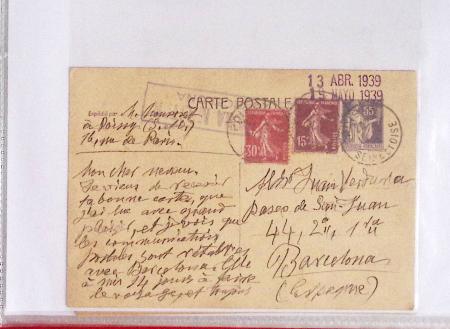 13 ABR. 1939
19 MAYO 1939
CARTE POSTALE
Expédié par M.
à Poissy (S.&O.)
16, rue de Paris.
30c
15c
55c
SEINE ET OISE
Mon cher neveu.
Je viens de recevoir
ta bonne carte, que
j'ai lue avec grand
plaisir, et je vois que
les communications
postales sont rétablies
avec Barcelona. Elle
a mis 14 jours à faire
le voyage
Juan
Paseo de San Juan
44, 2º, 1ra
Barcelona
(Espagne)